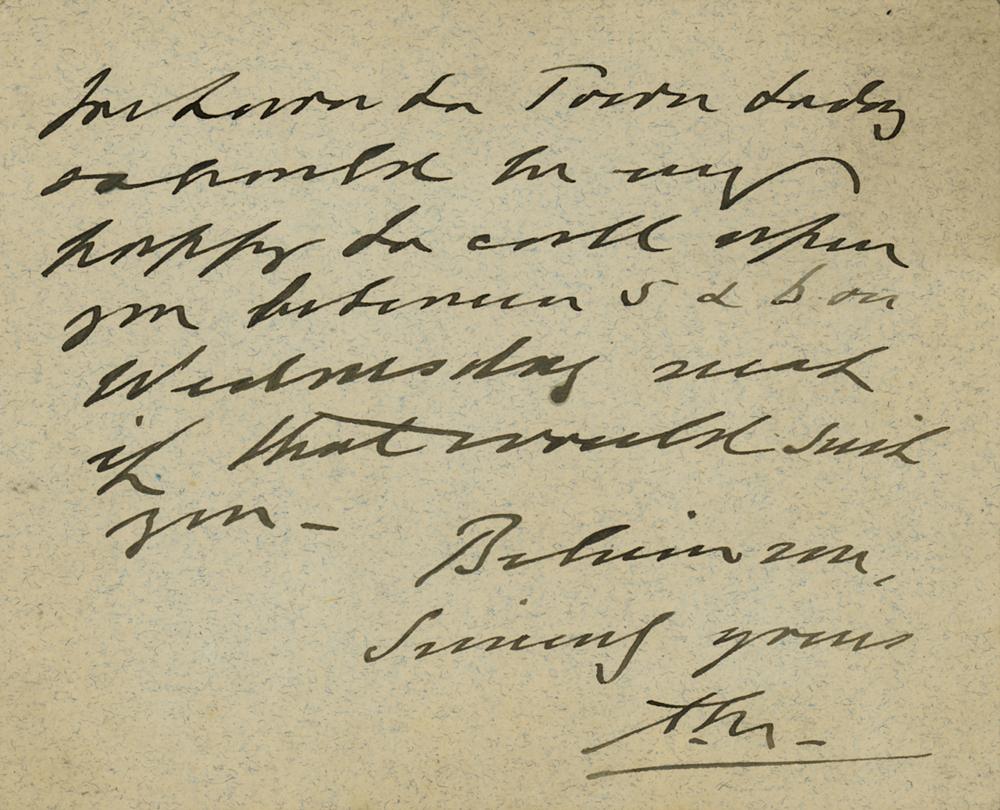 I return to Town today
& should be very
happy to call upon
you between 5 & 6 on
Wednesday next
if that would suit
you –
Believe me,
Sincerely yours